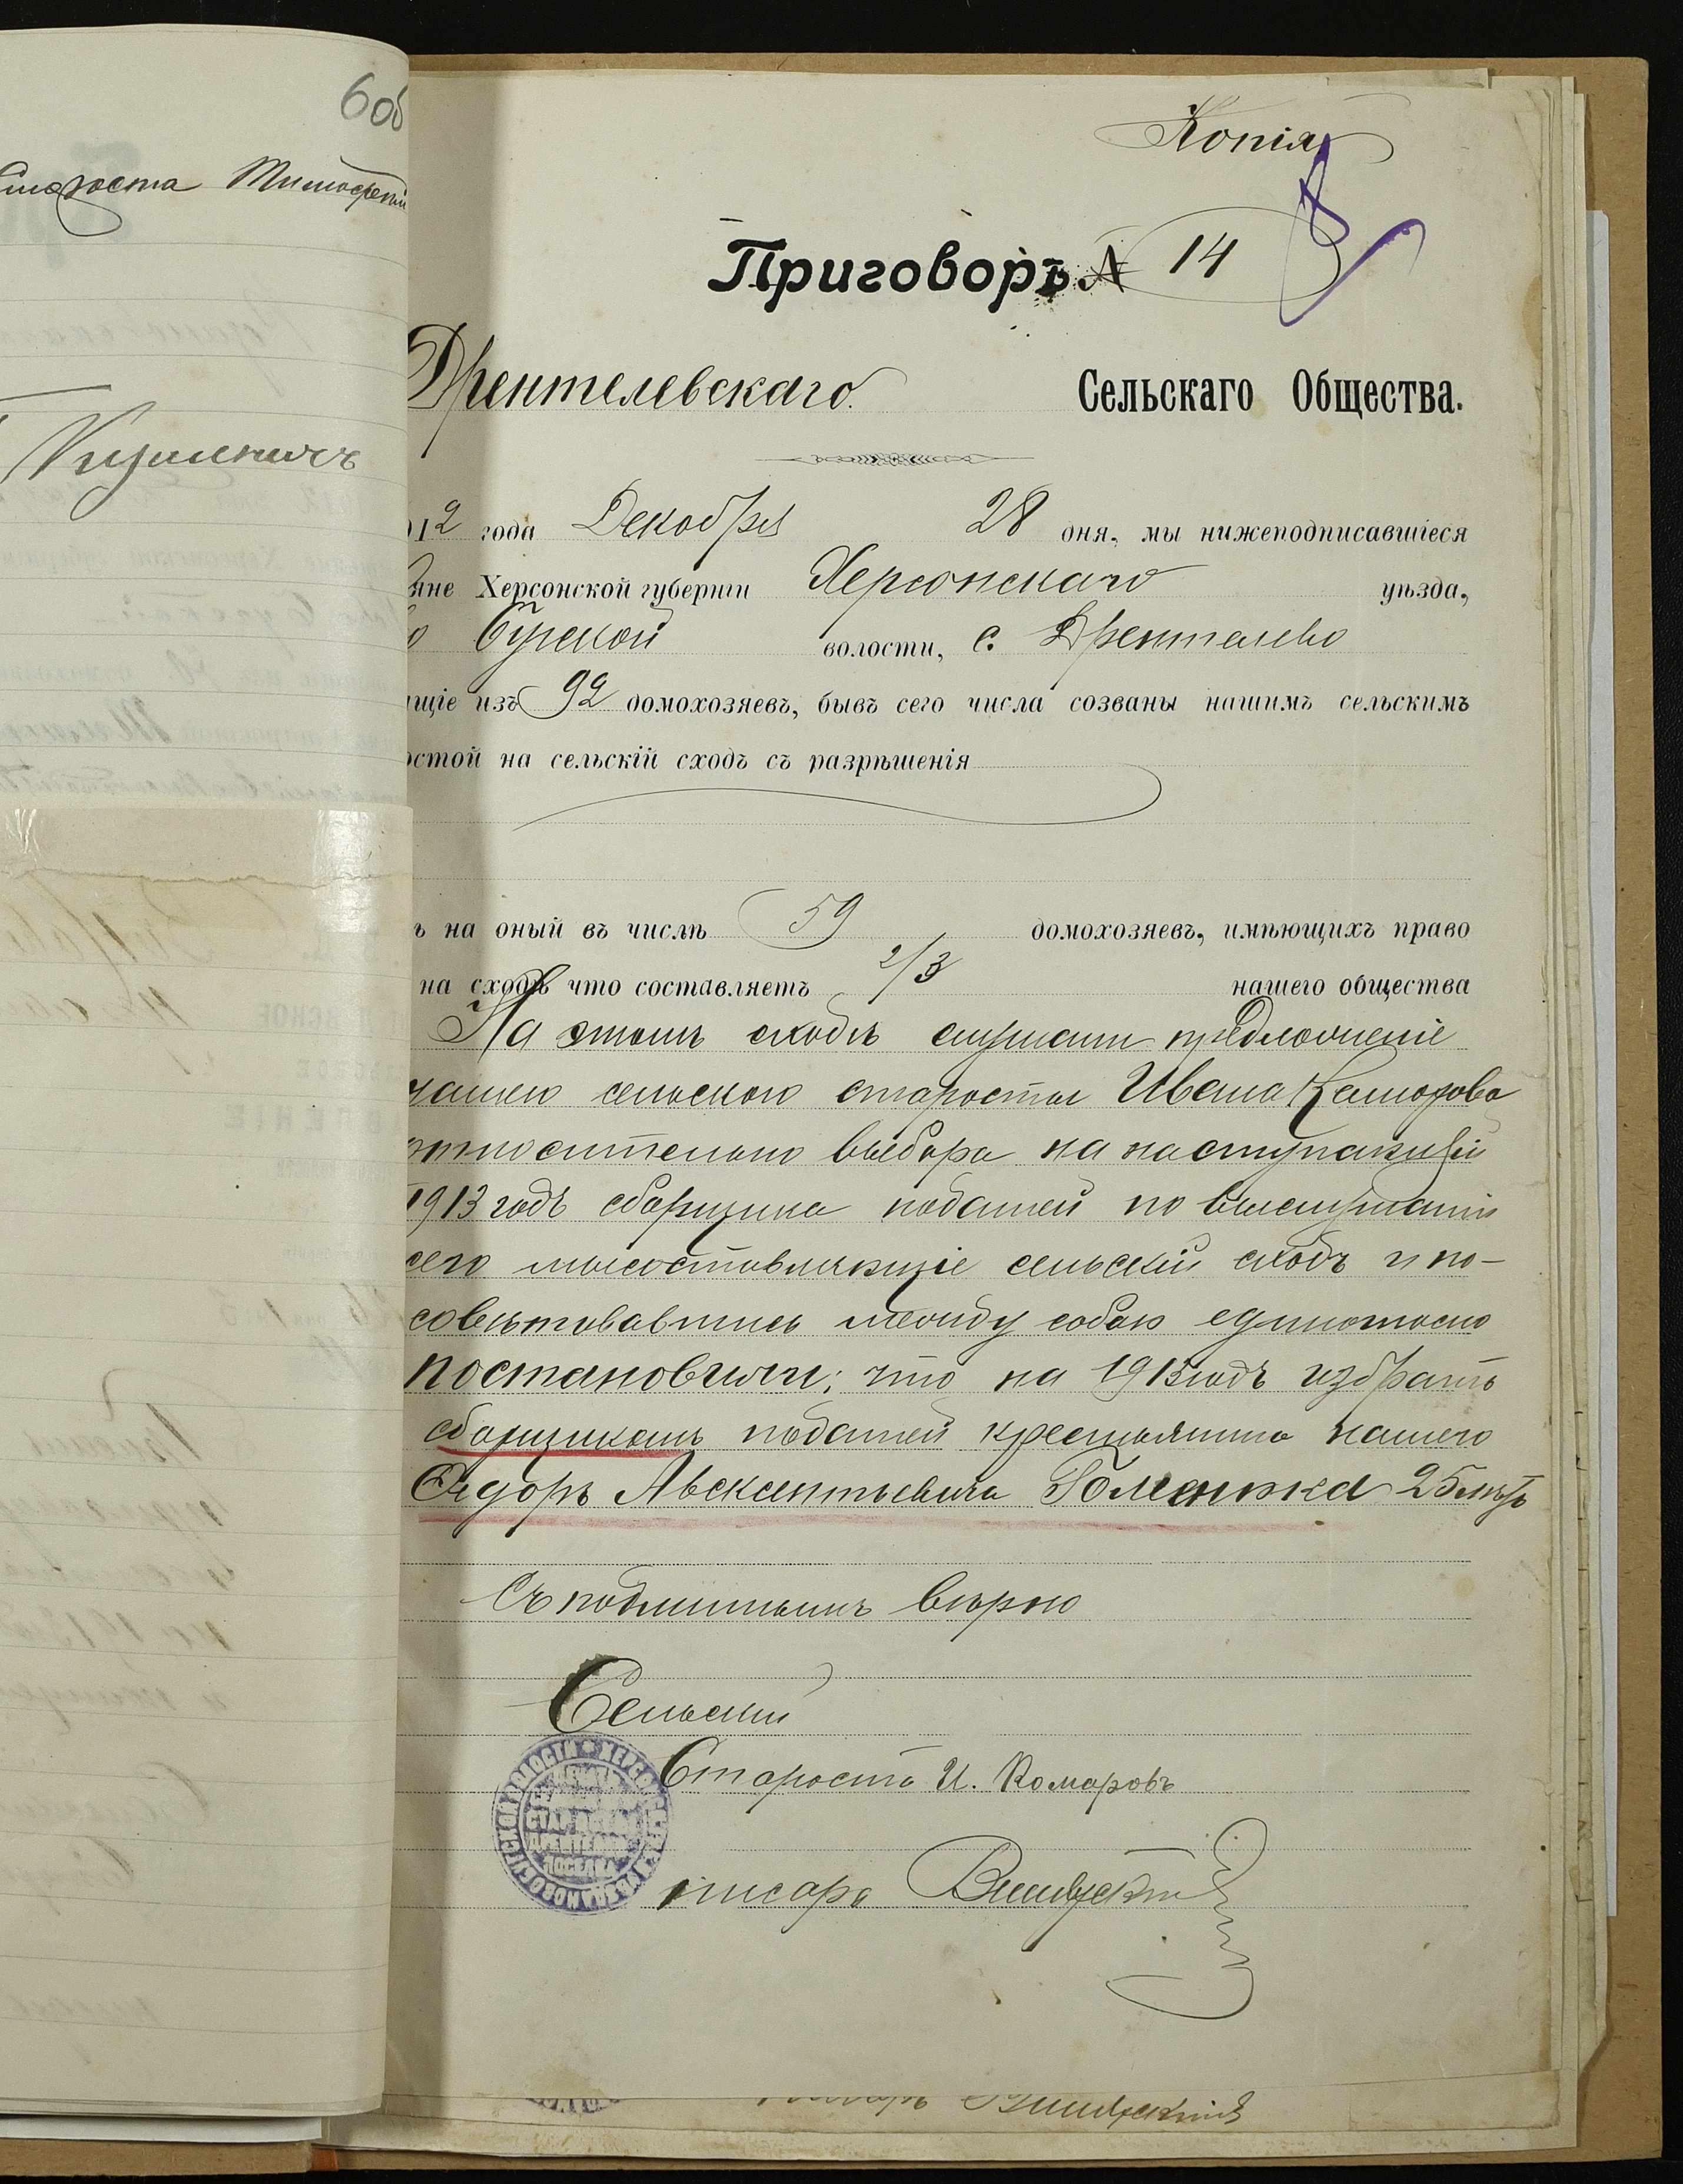 6об
Староста Тимофей
Копія
Приговоръ № 14
Дрентелевскаго Сельскаго Общества.
912 года Декабря 28 дня, мы нижеподписавшіеся
яне Херсонской губерніи Херсонскаго уѣзда,
о Бугской волости, с. Дрентелево
щіе изъ 92 домохозяевъ, бывъ сего числа созваны нашимъ сельскимъ
остой на сельскій сходъ съ разрѣшенія
ъ на оный въ числѣ 59 домохозяевъ, имѣющихъ право
на сходѣ что составляетъ 2/3 нашего общества
На этомъ сходѣ слушали предложеніе
нашего сельского старосты Ивана Комарова
относительно выбора на наступающій
1913 годъ сборщика податей по выслушаніи
сего мы составляющіе сельскій сходъ и по-
совѣтовавшись между собою единогласно
постановили: что на 1913 годъ избрать
сборщикомъ податей крестьянина нашего
Ѳедоръ Авксентьевича 25 лѣтъ
Съ подлиннымъ вѣрно
Сельскій
Староста И. Комаровъ
писарь
СТАРОСТА
ПОСЕЛКА